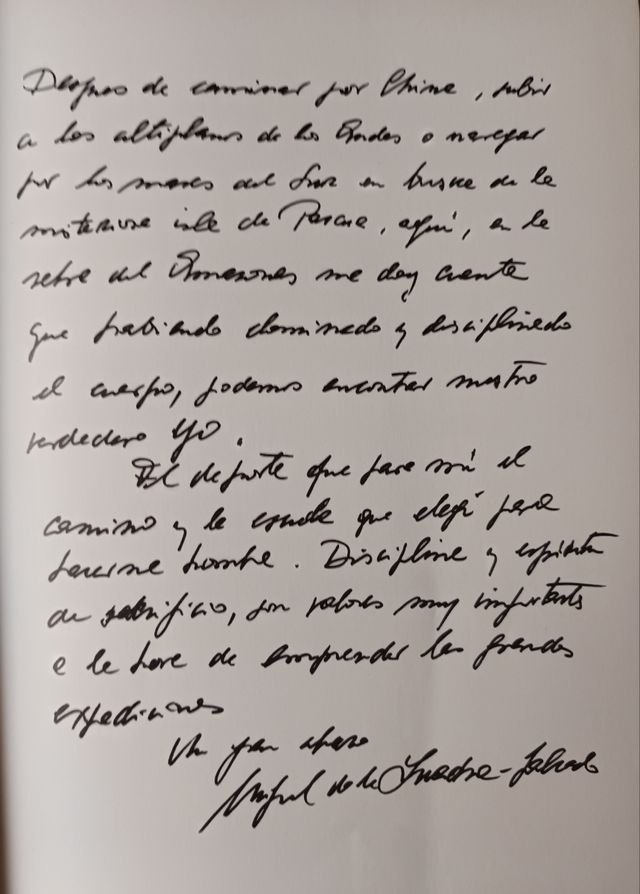 Despues de caminar por China, subir
a los altiplanos de los Andes o navegar
por los mares del Sur en busca de la
misteriosa isla de Pascua, aquí, en la
selva del Amazonas me doy cuenta
que habiendo dominado y disciplinado
el cuerpo, podemos encontrar nuestro
verdadero YO.
El deporte que para mí el
camino y la escuela que elegí para
hacerme hombre. Disciplina y espíritu
de sacrificio, son valores muy importantes
a la hora de emprender las grandes
expediciones
Un gran abrazo
Miguel de la Quadra-Salcedo